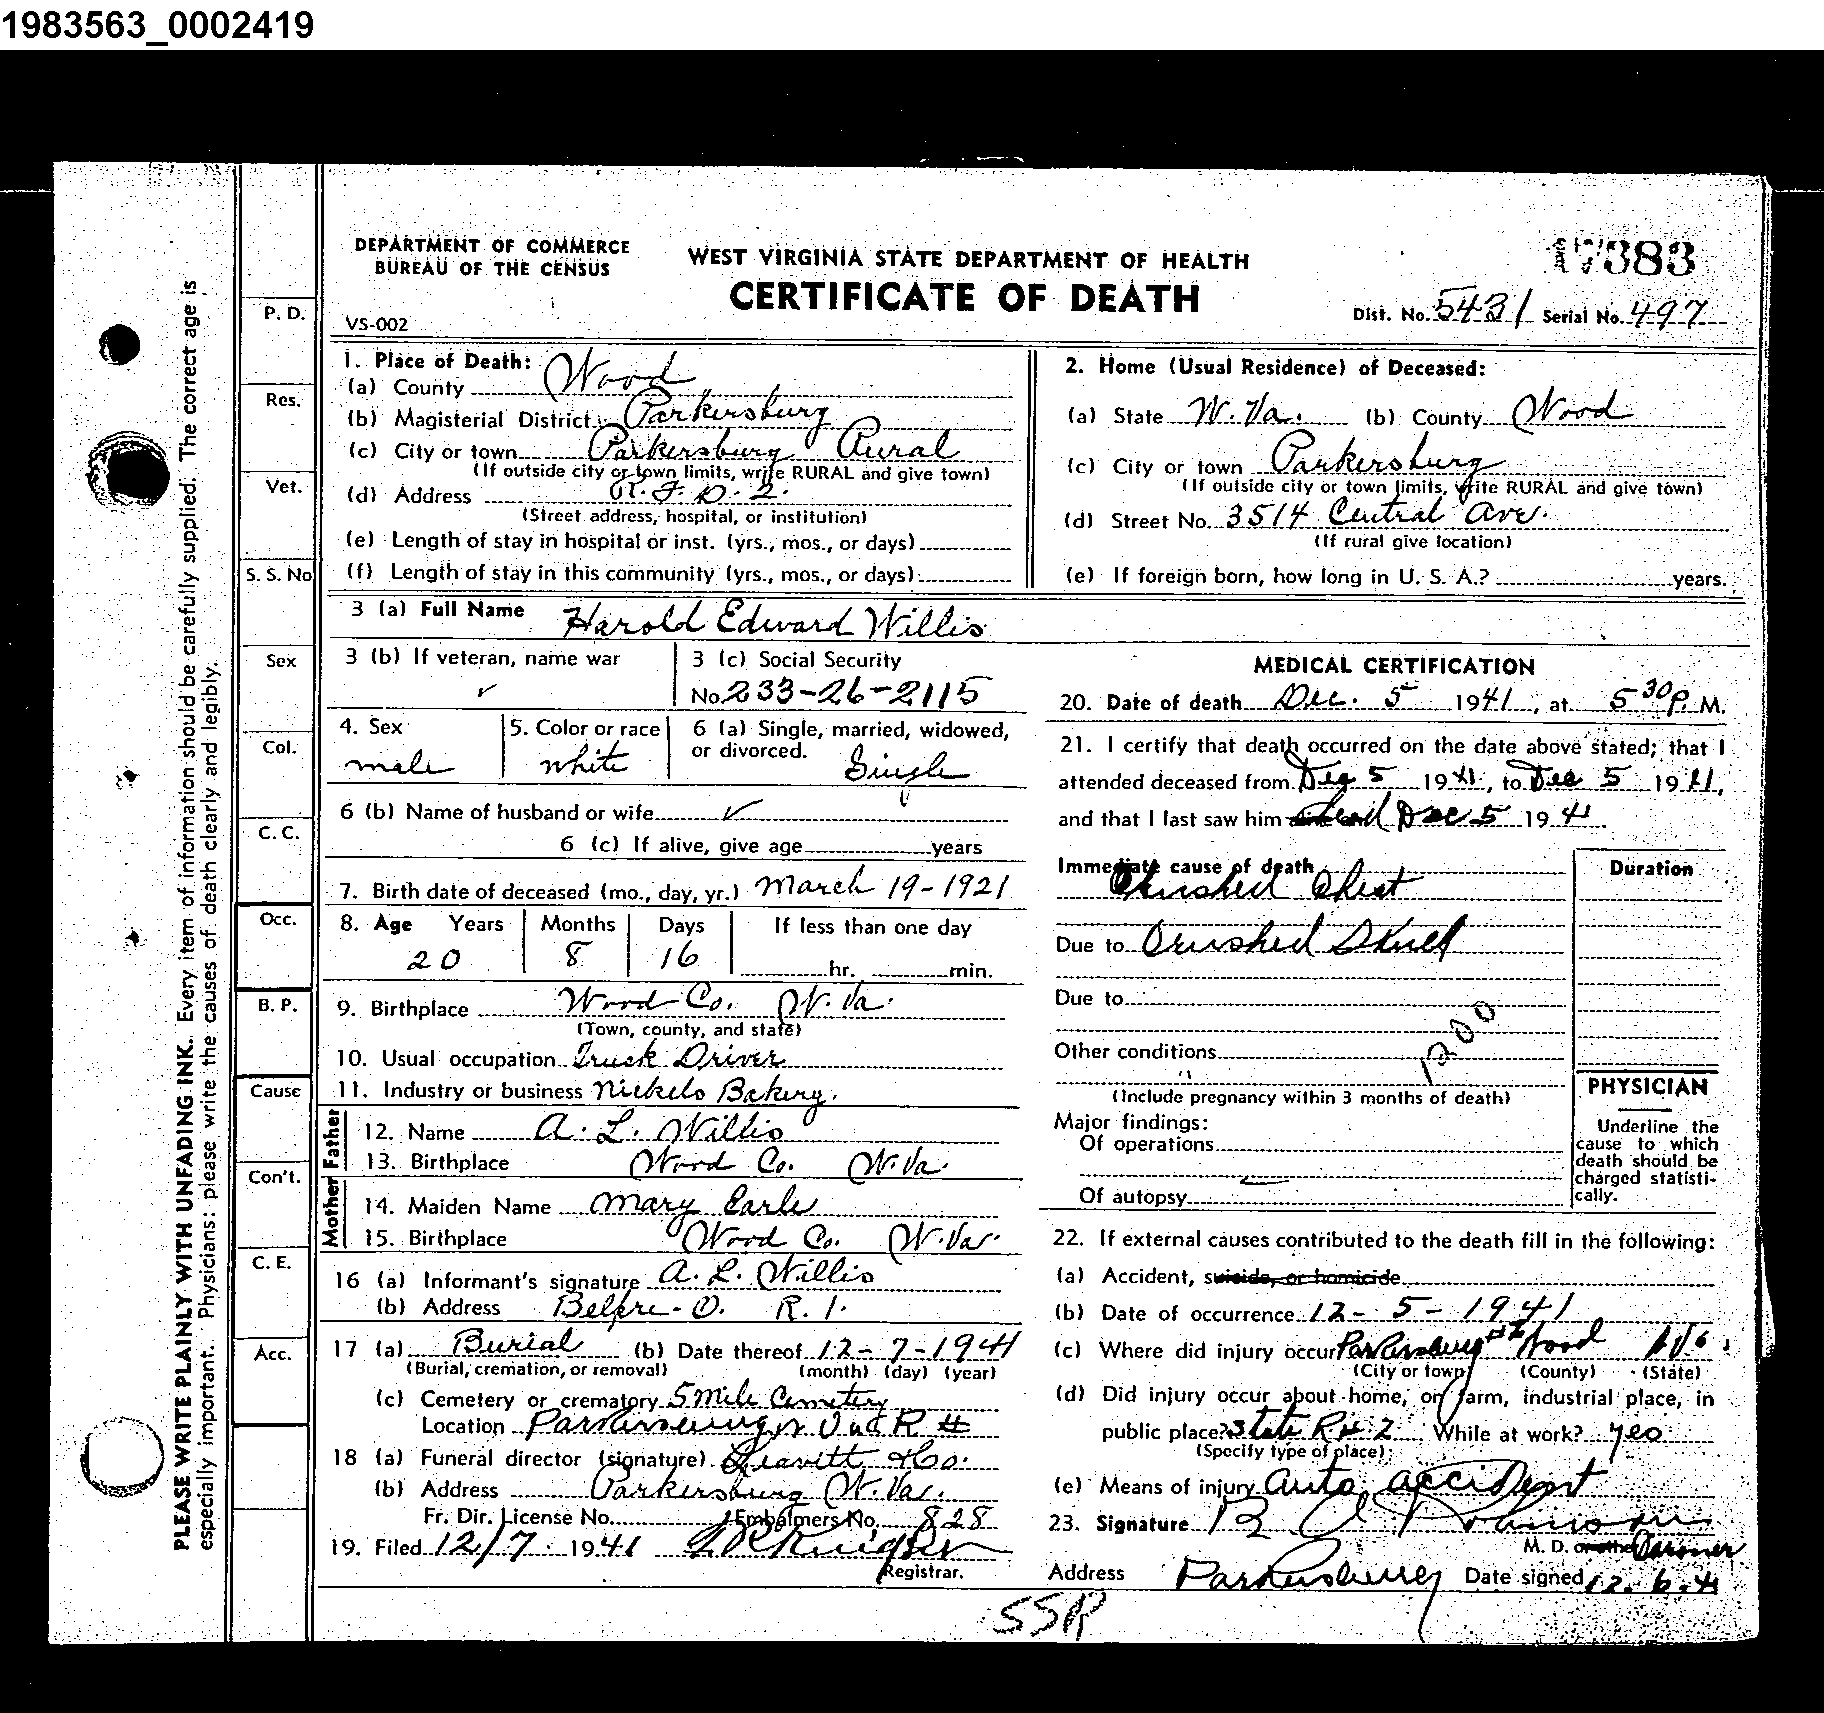 1983563_0002419
DEPARTMENT OF COMMERCE
BUREAU OF THE CENSUS
VS-002
WEST VIRGINIA STATE DEPARTMENT OF HEALTH
CERTIFICATE OF DEATH
17383
Dist. No. 5431 Serial No. 497
PLEASE WRITE PLAINLY WITH UNFADING INK. Every item of information should be carefully supplied. The correct age is
especially important. Physicians: please write the causes of death clearly and legibly.
P. D.
Res.
Vet.
S. S. No
Sex
Col.
C. C.
Occ.
B. P.
Cause
Con't.
C. E.
Acc.
1. Place of Death:
(a) County Wood
(b) Magisterial District Parkersburg
(c) City or town Parkersburg Rural
(If outside city or town limits, write RURAL and give town)
(d) Address R. F. D. 2.
(Street address, hospital, or institution)
(e) Length of stay in hospital or inst. (yrs., mos., or days)
(f) Length of stay in this community (yrs., mos., or days)
2. Home (Usual Residence) of Deceased:
(a) State W. Va. (b) County Wood
(c) City or town Parkersburg
(If outside city or town limits, write RURAL and give town)
(d) Street No. 3514 Central Ave.
(If rural give location)
(e) If foreign born, how long in U. S. A.? years.
3 (a) Full Name Harold Edward Willis
3 (b) If veteran, name war
3 (c) Social Security
No. 233-26-2115
4. Sex
male
5. Color or race
white
6 (a) Single, married, widowed,
or divorced. Single
6 (b) Name of husband or wife
6 (c) If alive, give age years
7. Birth date of deceased (mo., day, yr.) March 19-1921
8. Age Years Months Days If less than one day
20 8 16 hr. min.
9. Birthplace Wood Co. W. Va.
(Town, county, and state)
10. Usual occupation Truck Driver
11. Industry or business Nickels Bakery.
Father
12. Name A. L. Willis
13. Birthplace Wood Co. W. Va.
Mother
14. Maiden Name Mary Earle
15. Birthplace Wood Co. W. Va.
16 (a) Informant's signature A. L. Willis
(b) Address Belpre - O. R. 1.
17 (a) Burial (b) Date thereof 12-7-1941
(Burial, cremation, or removal) (month) (day) (year)
(c) Cemetery or crematory 5 Mile Cemetery
Location Parkersburg
18 (a) Funeral director (signature) Leavitt & Co.
(b) Address Parkersburg W. Va.
Fr. Dir. License No. Embalmers No. 828
19. Filed 12/7 1941
Registrar.
MEDICAL CERTIFICATION
20. Date of death Dec. 5 1941, at 5 30 P. M.
21. I certify that death occurred on the date above stated; that I
attended deceased from Dec 5 1941, to Dec 5 1941,
and that I last saw him dead Dec 5 1941
Immediate cause of death
Crushed Chest
Duration
Due to Crushed Skull
Due to
Other conditions
1200
(Include pregnancy within 3 months of death)
Major findings:
Of operations
Of autopsy
PHYSICIAN
Underline the
cause to which
death should be
charged statisti-
cally.
22. If external causes contributed to the death fill in the following:
(a) Accident, suicide, or homicide
(b) Date of occurrence 12-5-1941
(c) Where did injury occur Parkersburg #2 Wood
(City or town) (County) (State)
(d) Did injury occur about home, on farm, industrial place, in
public place? State Rt 2 While at work? yes
(Specify type of place)
(e) Means of injury Auto accident
23. Signature
M. D. or other Coroner
Address Parkersburg Date signed 12-6-41
SSR